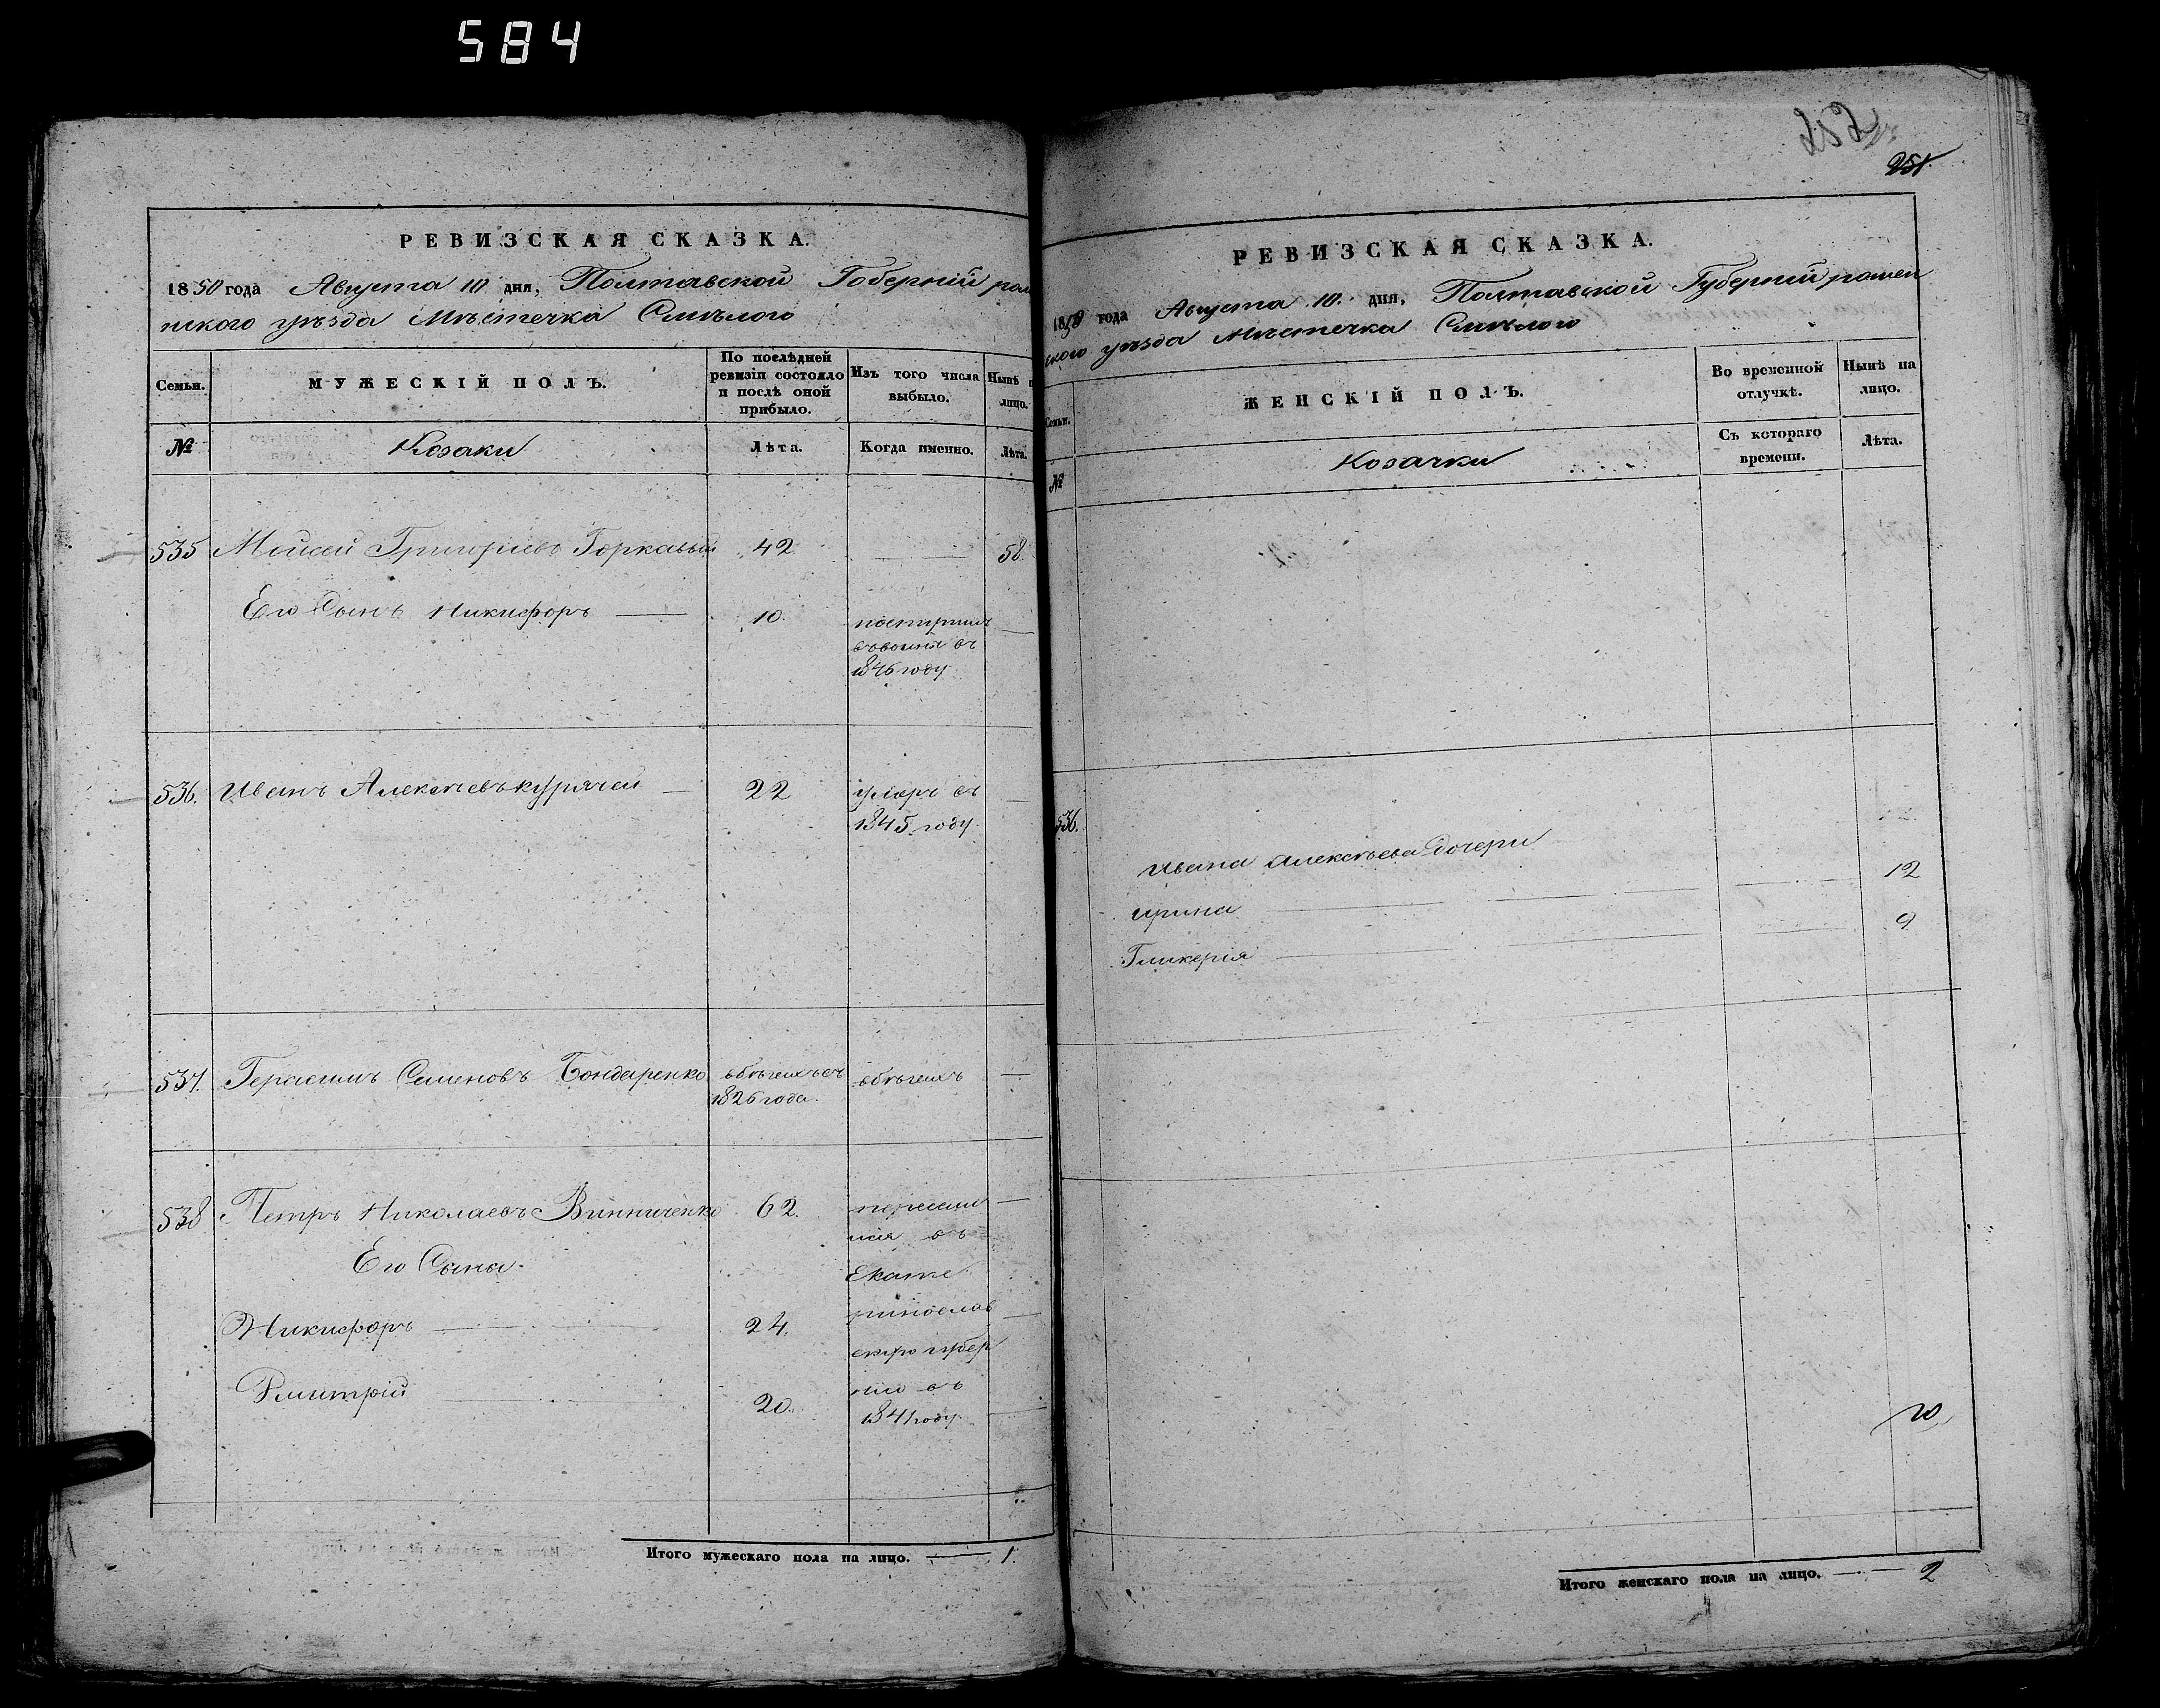 584
РЕВИЗСКАЯ СКАЗКА.
1850 года Августа 10 дня, Полтавской Гоберній ром
нскаго уѣзда Мѣстечка Смѣлого
Семьи.
МУЖЕСКІЙ ПОЛЪ.
По послѣдней ревизіи состояло и послѣ оной прибыло.
Изъ того числа выбыло.
Нынѣ на лицо.
№
Козаки
Лѣта.
Когда именно.
Лѣта.
535 Мойсей Григориевъ Горкавый 42 58.
Его Сынъ Никифоръ 10.
1846 году
536. Иванъ Алексѣевъ 22 умеръ въ
1845 году
537. Герасимъ Семеновъ Бондаренко
1826 года.
538 Петръ Николаевъ Винниченко 62. переселил
ися въ
Его Сыны. Екате
Никифоръ 24. ринослав
скую губер
Дмитрій 20. нію въ
1841 году
Итого мужескаго пола на лицо. 1.
251
РЕВИЗСКАЯ СКАЗКА.
1850 года Августа 10. дня, Полтавской Губерний ромен
ского уѣзда Мѣстечка Смѣлого
Семьи.
ЖЕНСКІЙ ПОЛЪ.
Во временной отлучкѣ.
Нынѣ на лицо.
№
Козачки
Съ котораго времени.
Лѣта.
536.
Ивана Алексѣева дочери
Ирина 12
Гликерія 9
Итого женскаго пола на лицо. 2